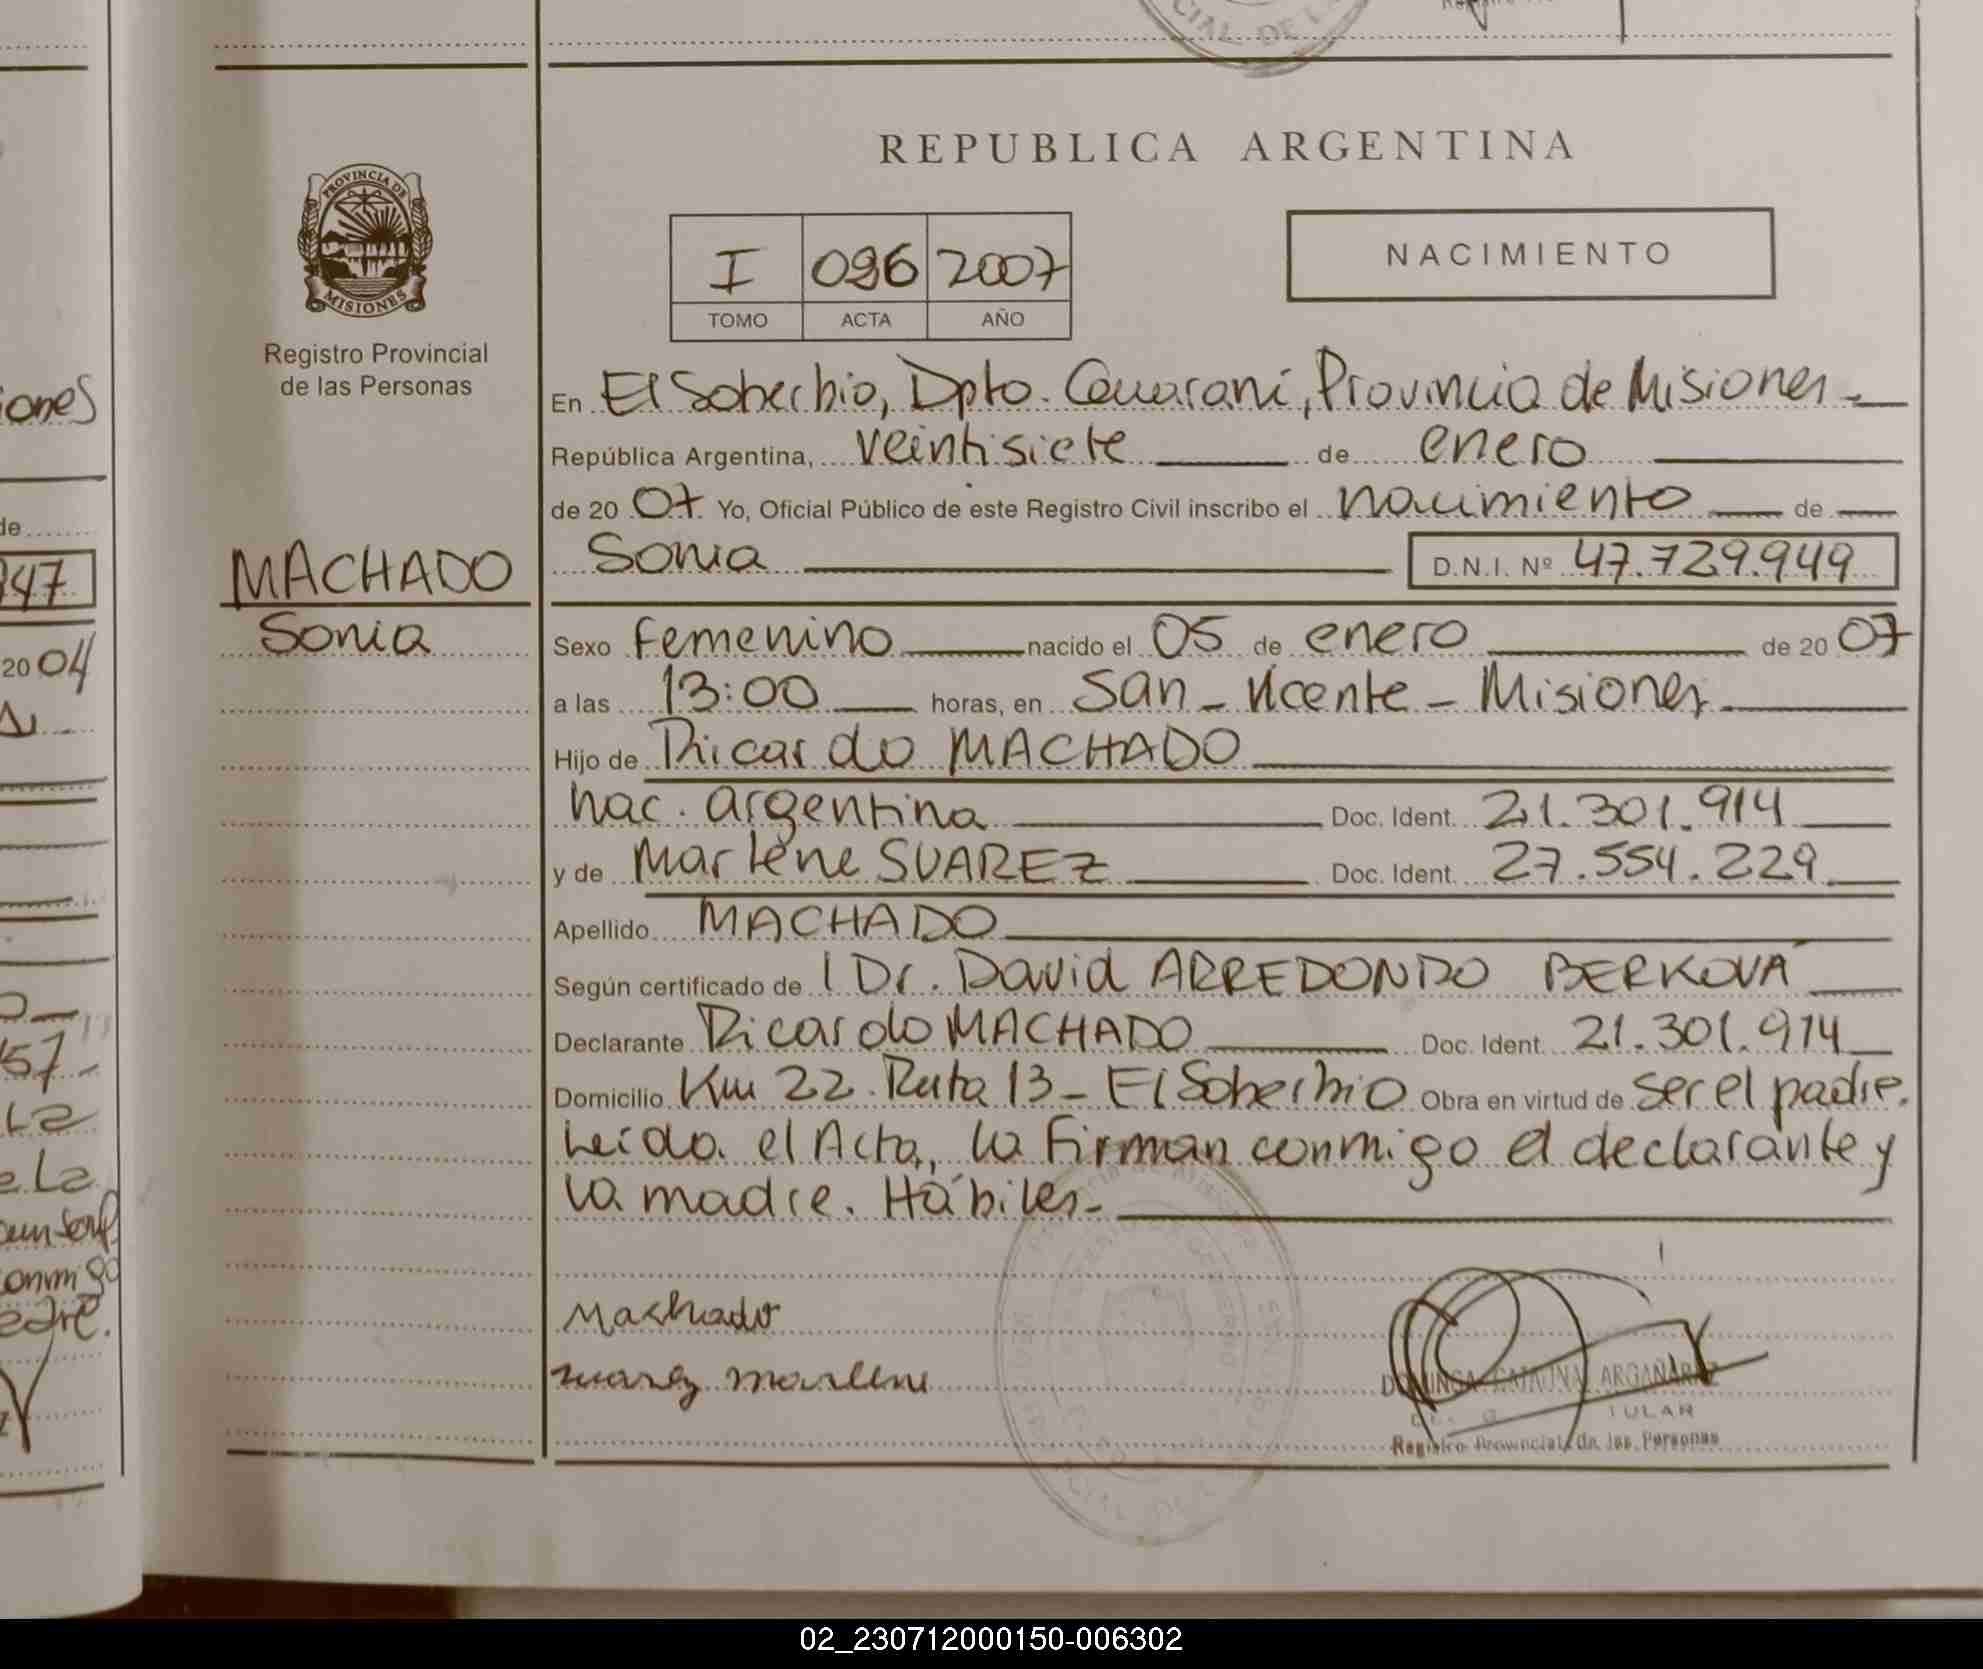 REPUBLICA ARGENTINA
PROVINCIA DE
MISIONES
Registro Provincial
de las Personas
I 096 2007
TOMO ACTA AÑO
NACIMIENTO
En El Soberbio, Dpto. Guaraní, Provincia de Misiones.
República Argentina, veintisiete de enero
de 20 07. Yo, Oficial Público de este Registro Civil inscribo el nacimiento de
MACHADO
Sonia
Sonia D.N.I. Nº 47.729.949
Sexo Femenino nacido el 05 de enero de 20 07
a las 13:00 horas, en San Vicente - Misiones
Hijo de Ricardo MACHADO
nac. argentina Doc. Ident. 21.301.914
y de Marlene SUAREZ Doc. Ident. 27.554.229
Apellido MACHADO
Según certificado de l Dr. David ARREDONDO BERKOVA
Declarante Ricardo MACHADO Doc. Ident. 21.301.914
Domicilio Km 22 Ruta 13 - El Soberbio Obra en virtud de ser el padre.
Leída el Acta, la firman conmigo el declarante y
la madre. Hábiles-
Machado
suarez marlene
ARGAÑARAZ
Registro Provincial de las Personas
iones
de
947
20 04
57-
La
e La
onmigo
CIAL DE L
02_230712000150-006302